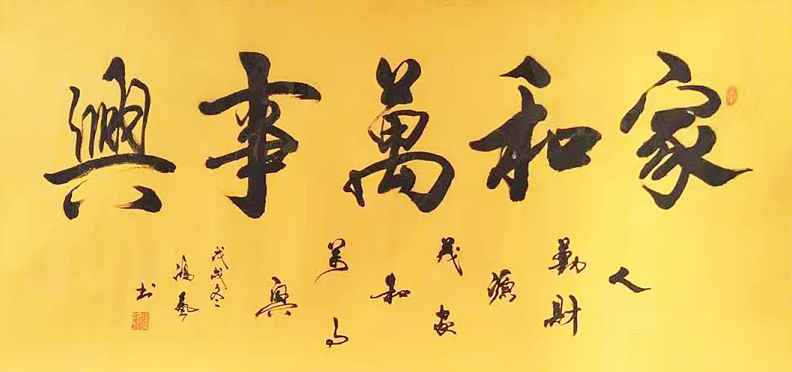 家和萬事興
人勤財源茂家和萬事興
戊戌冬
藝書